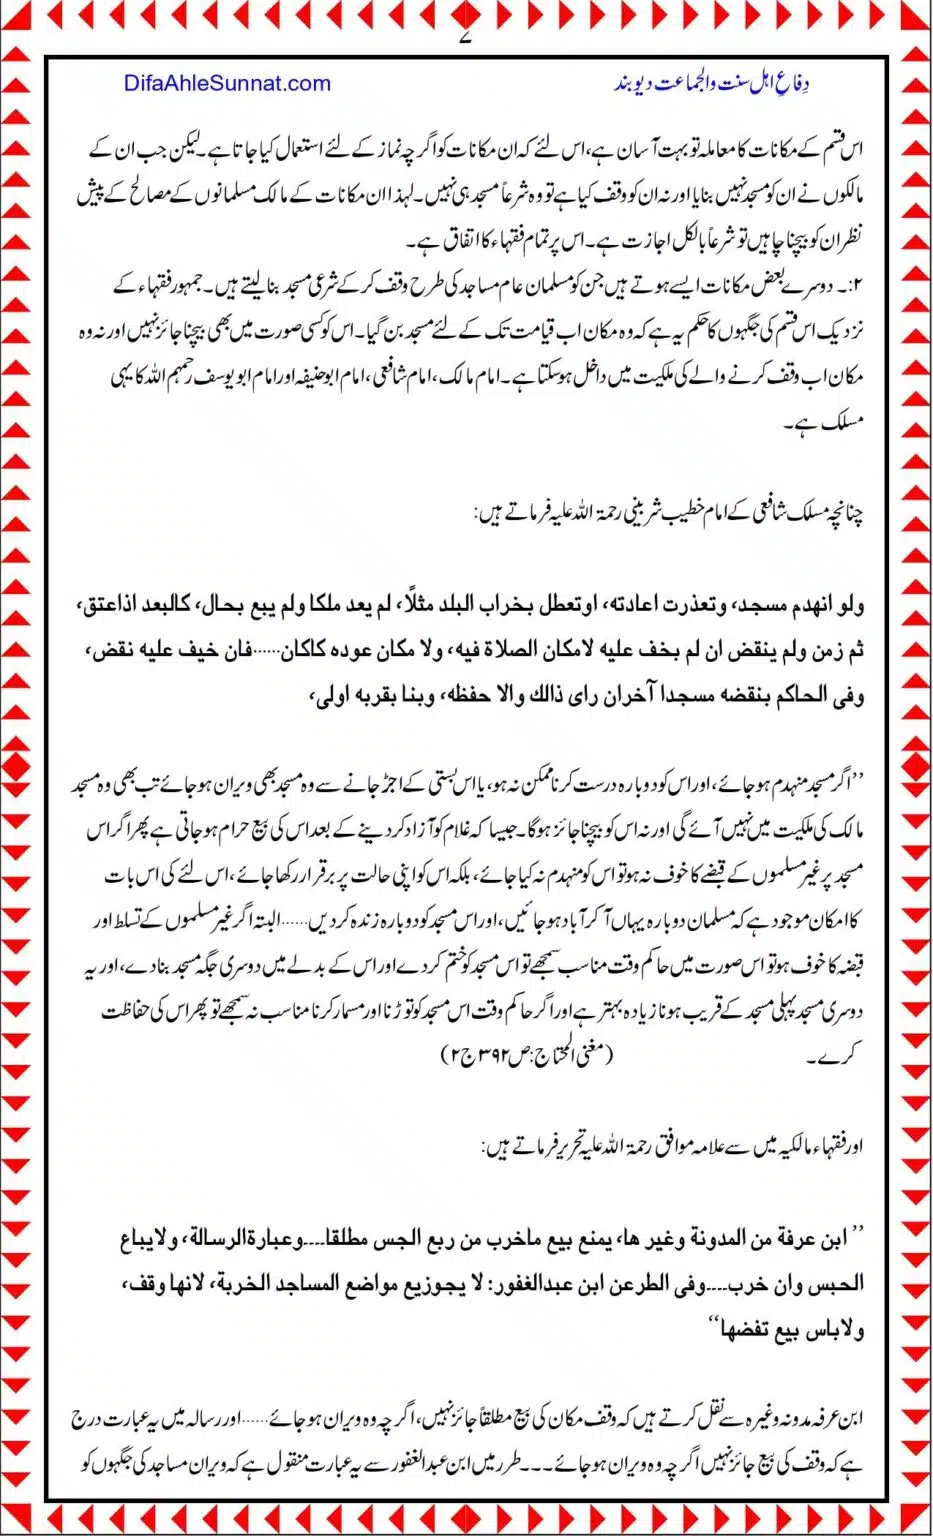 ۷
DifaAhleSunnat.com
دِفاعِ اہل سنت والجماعت دیوبند
اس قسم کے مکانات کا معاملہ تو بہت آسان ہے، اس لئے کہ ان مکانات کو اگرچہ نماز کے لئے استعمال کیا جاتا ہے۔ لیکن جب ان کے
مالکوں نے ان کو مسجد نہیں بنایا اور نہ ان کو وقف کیا ہے تو وہ شرعاً مسجد ہی نہیں۔ لہذا ان مکانات کے مالک مسلمانوں کے مصالح کے پیش
نظر ان کو بیچنا چاہیں تو شرعاً بالکل اجازت ہے۔ اس پر تمام فقہاء کا اتفاق ہے۔
۲:۔ دوسرے بعض مکانات ایسے ہوتے ہیں جن کو مسلمان عام مساجد کی طرح وقف کر کے شرعی مسجد بنا لیتے ہیں۔ جمہور فقہاء کے
نزدیک اس قسم کی جگہوں کا حکم یہ ہے کہ وہ مکان اب قیامت تک کے لئے مسجد بن گیا۔ اس کو کسی صورت میں بھی بیچنا جائز نہیں اور نہ وہ
مکان اب وقف کرنے والے کی ملکیت میں داخل ہو سکتا ہے۔ امام مالک، امام شافعی، امام ابو حنیفہ اور امام ابو یوسف رحمہم اللہ کا یہی
مسلک ہے۔
چنانچہ مسلک شافعی کے امام خطیب شربینی رحمۃ اللہ علیہ فرماتے ہیں:
ولو انھدم مسجد، وتعذرت اعادتہ، اوتعطل بخراب البلد مثلاً، لم یعد ملکا ولم یبع بحال، کالبعد اذاعتق،
ثم زمن ولم ینقض ان لم بخف علیہ لامکان الصلاۃ فیہ، ولا مکان عودہ کاکان......فان خیف علیہ نقض،
وفی الحاکم بنقضہ مسجدا آخران رای ذالك والا حفظہ، وبنا بقربہ اولی،
’’اگر مسجد منہدم ہو جائے، اور اس کو دوبارہ درست کرنا ممکن نہ ہو، یا اس بستی کے اجڑ جانے سے وہ مسجد بھی ویران ہو جائے تب بھی وہ مسجد
مالک کی ملکیت میں نہیں آئے گی اور نہ اس کو بیچنا جائز ہوگا۔ جیسا کہ غلام کو آزاد کر دینے کے بعد اس کی بیع حرام ہو جاتی ہے پھر اگر اس
مسجد پر غیر مسلموں کے قبضے کا خوف نہ ہو تو اس کو منہدم نہ کیا جائے، بلکہ اس کو اپنی حالت پر برقرار رکھا جائے، اس لئے کی اس بات
کا امکان موجود ہے کہ مسلمان دوبارہ یہاں آ کر آباد ہو جائیں، اور اس مسجد کو دوبارہ زندہ کر دیں......البتہ اگر غیر مسلموں کے تسلط اور
قبضہ کا خوف ہو تو اس صورت میں حاکم وقت مناسب سمجھے تو اس مسجد کو ختم کر دے اور اس کے بدلے میں دوسری جگہ مسجد بنا دے، اور یہ
دوسری مسجد پہلی مسجد کے قریب ہونا زیادہ بہتر ہے اور اگر حاکم وقت اس مسجد کو توڑنا اور مسمار کرنا مناسب نہ سمجھے تو پھر اس کی حفاظت
کرے۔ (مغنی المحتاج: ص ۳۹۲ ج ۲)
اور فقہاء مالکیہ میں سے علامہ موافق رحمۃ اللہ علیہ تحریر فرماتے ہیں:
’’ابن عرفة من المدونة وغیر ھا، یمنع بیع ماخرب من ربع الجس مطلقا....وعبارۃالرسالة، ولایباع
الحبس وان خرب....وفی الطرعن ابن عبدالغفور: لا یجوزیع مواضع المساجد الخربة، لانھا وقف،
ولاباس بیع تفضھا‘‘
ابن عرفہ مدونہ وغیرہ سے نقل کرتے ہیں کہ وقف مکان کی بیع مطلقاً جائز نہیں، اگرچہ وہ ویران ہو جائے......اور رسالہ میں یہ عبارت درج
ہے کہ وقف کی بیع جائز نہیں اگرچہ وہ ویران ہو جائے۔۔۔طرر میں ابن عبد الغفور سے یہ عبارت منقول ہے کہ ویران مساجد کی جگہوں کو